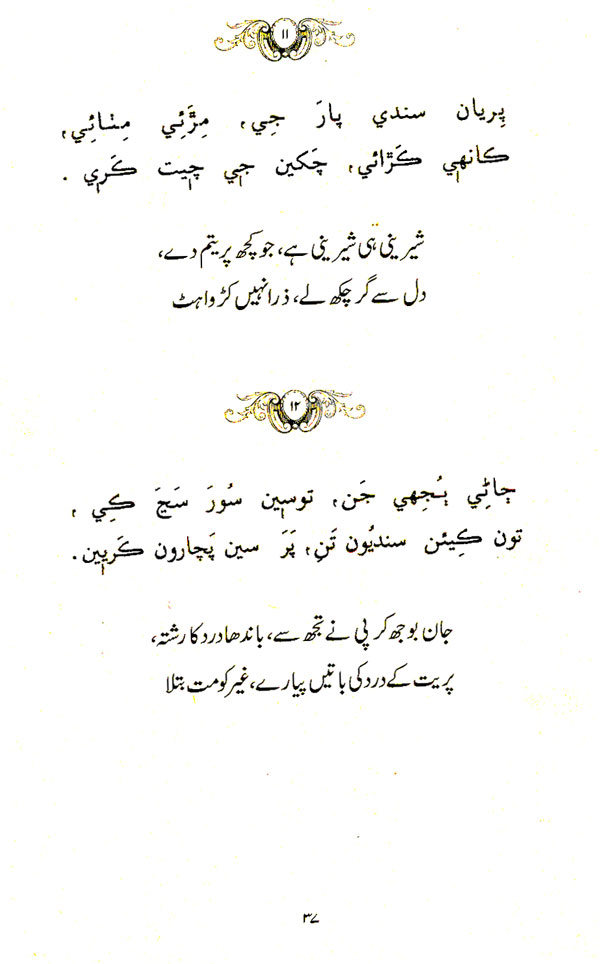 ۱۱
پِريان سندي پارَ جِي، مِڙَئِي مِٺائِي،
ڪانهي ڪَڙائي، چَکين جي چيت ڪَري.
شیرینی ہی شیرینی ہے، جو کچھ پریتم دے،
دل سے گر چکھ لے، ذرا نہیں کڑواہٹ
۱۲
ڄاڻِي ٻُجهي جَن، توسين سُورَ سَڃَ ڪِي،
تون ڪِيئن سنديُون تَنِ، پَرَ سين پَچارون ڪَرِيين.
جان بوجھ کر پی نے تجھ سے، باندھا درد کا رشتہ،
پریت کے درد کی باتیں پیارے، غیر کو مت بتلا
۳۷